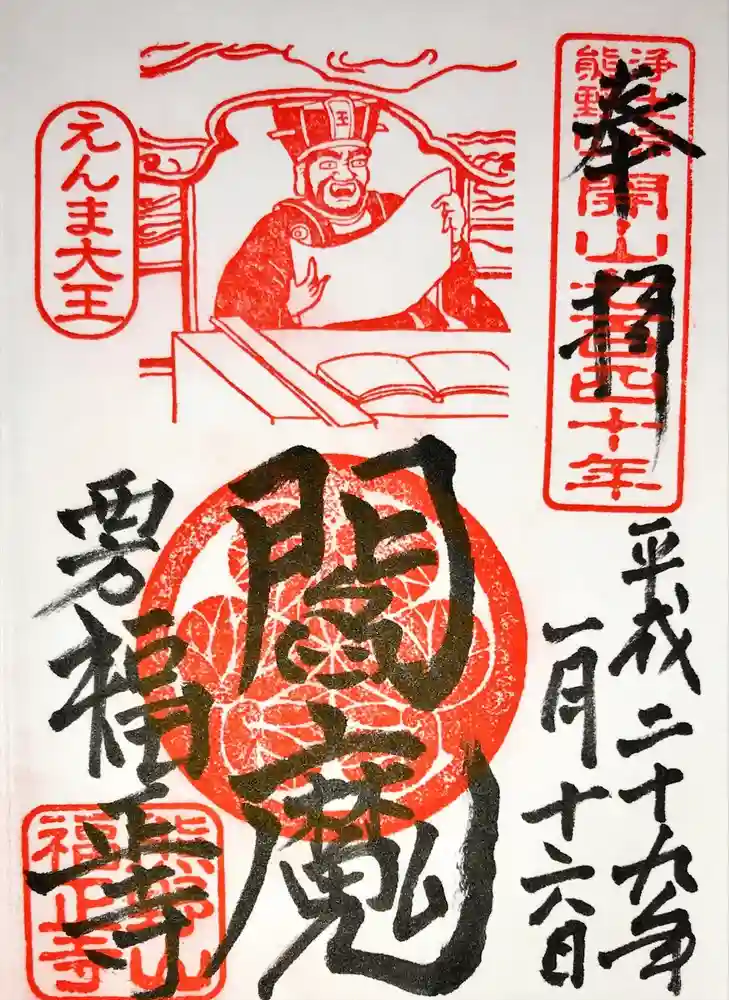 奉拝
浄土宗
熊野山
開山
百四十年
平成二十九年
一月十六日
王
えんま大王
閻魔
福正寺
熊野山
福正寺